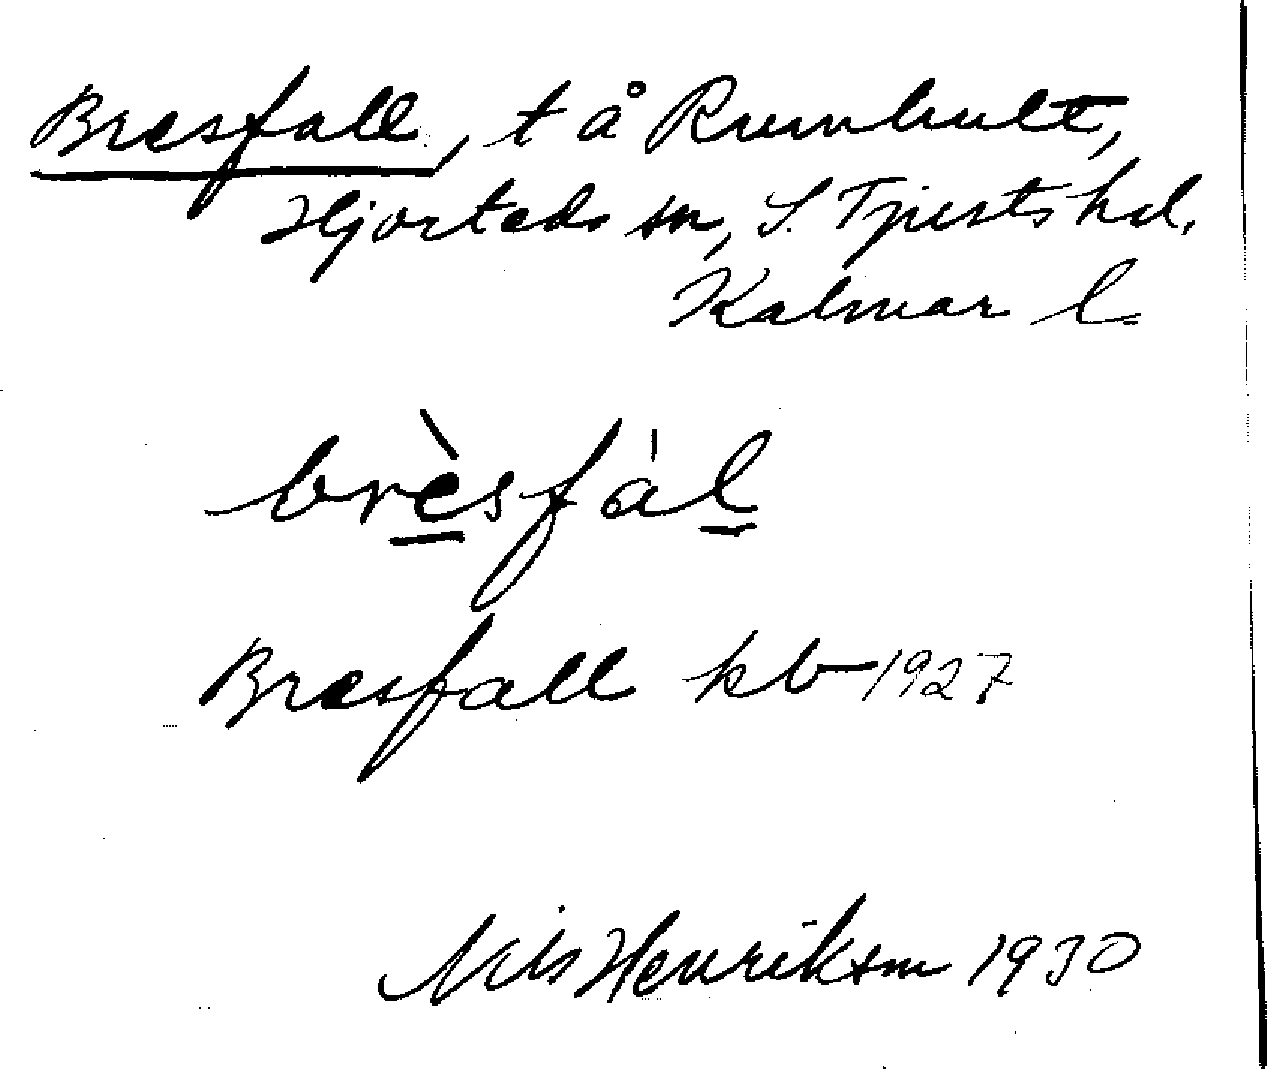 Bresfall, t å Rumhult,
Hjorteds sn, S. Tjusts hd.
Kalmar l.
brèsfàl
Bresfall kb 1927
Nils Henriksson 1930